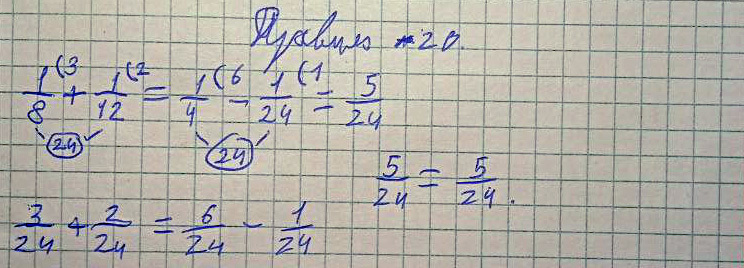 Правило №20.
1/8 (3 + 1/12 (2 = 1/4 (6 - 1/24 (1 = 5/24
24 24
5/24 = 5/24.
3/24 + 2/24 = 6/24 - 1/24